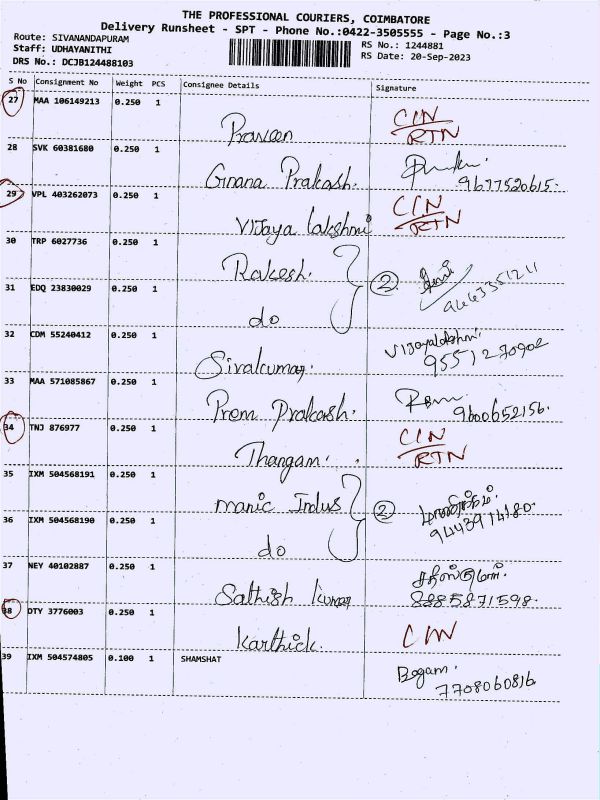 THE PROFESSIONAL COURIERS, COIMBATORE
Delivery Runsheet - SPT - Phone No.:0422-3505555 - Page No.:3
Route: SIVANANDAPURAM
Staff: UDHAYANITHI
DRS No.: DCJB124488103
RS No.: 1244881
RS Date: 20-Sep-2023
S No Consignment No Weight PCS Consignee Details Signature
27 MAA 106149213 0.250 1
Praveen CIN
RTN
28 SVK 60381680 0.250 1
Gnana Prakash. 9677520615.
29 VPL 403262073 0.250 1
Vijaya lakshmi CIN
RTN
30 TRP 6027736 0.250 1
Rakesh. 2
9463351211
31 EDQ 23830029 0.250 1
do
32 CDM 55240412 0.250 1
Sivakumar. Vijayalakshmi.
9551270902
33 MAA 571085867 0.250 1
Prem Prakash. Ram
9600652156.
34 TNJ 876977 0.250 1
Thangam. CIN
RTN
35 IXM 504568191 0.250 1
manic Indus 2
9443914180.
36 IXM 504568190 0.250 1
do
37 NEY 40102887 0.250 1
Sathish kumar
8885871598.
38 DTY 3776003 0.250 1
Karthick. CIN
39 IXM 504574805 0.100 1 SHAMSHAT
Begam.
7708060816